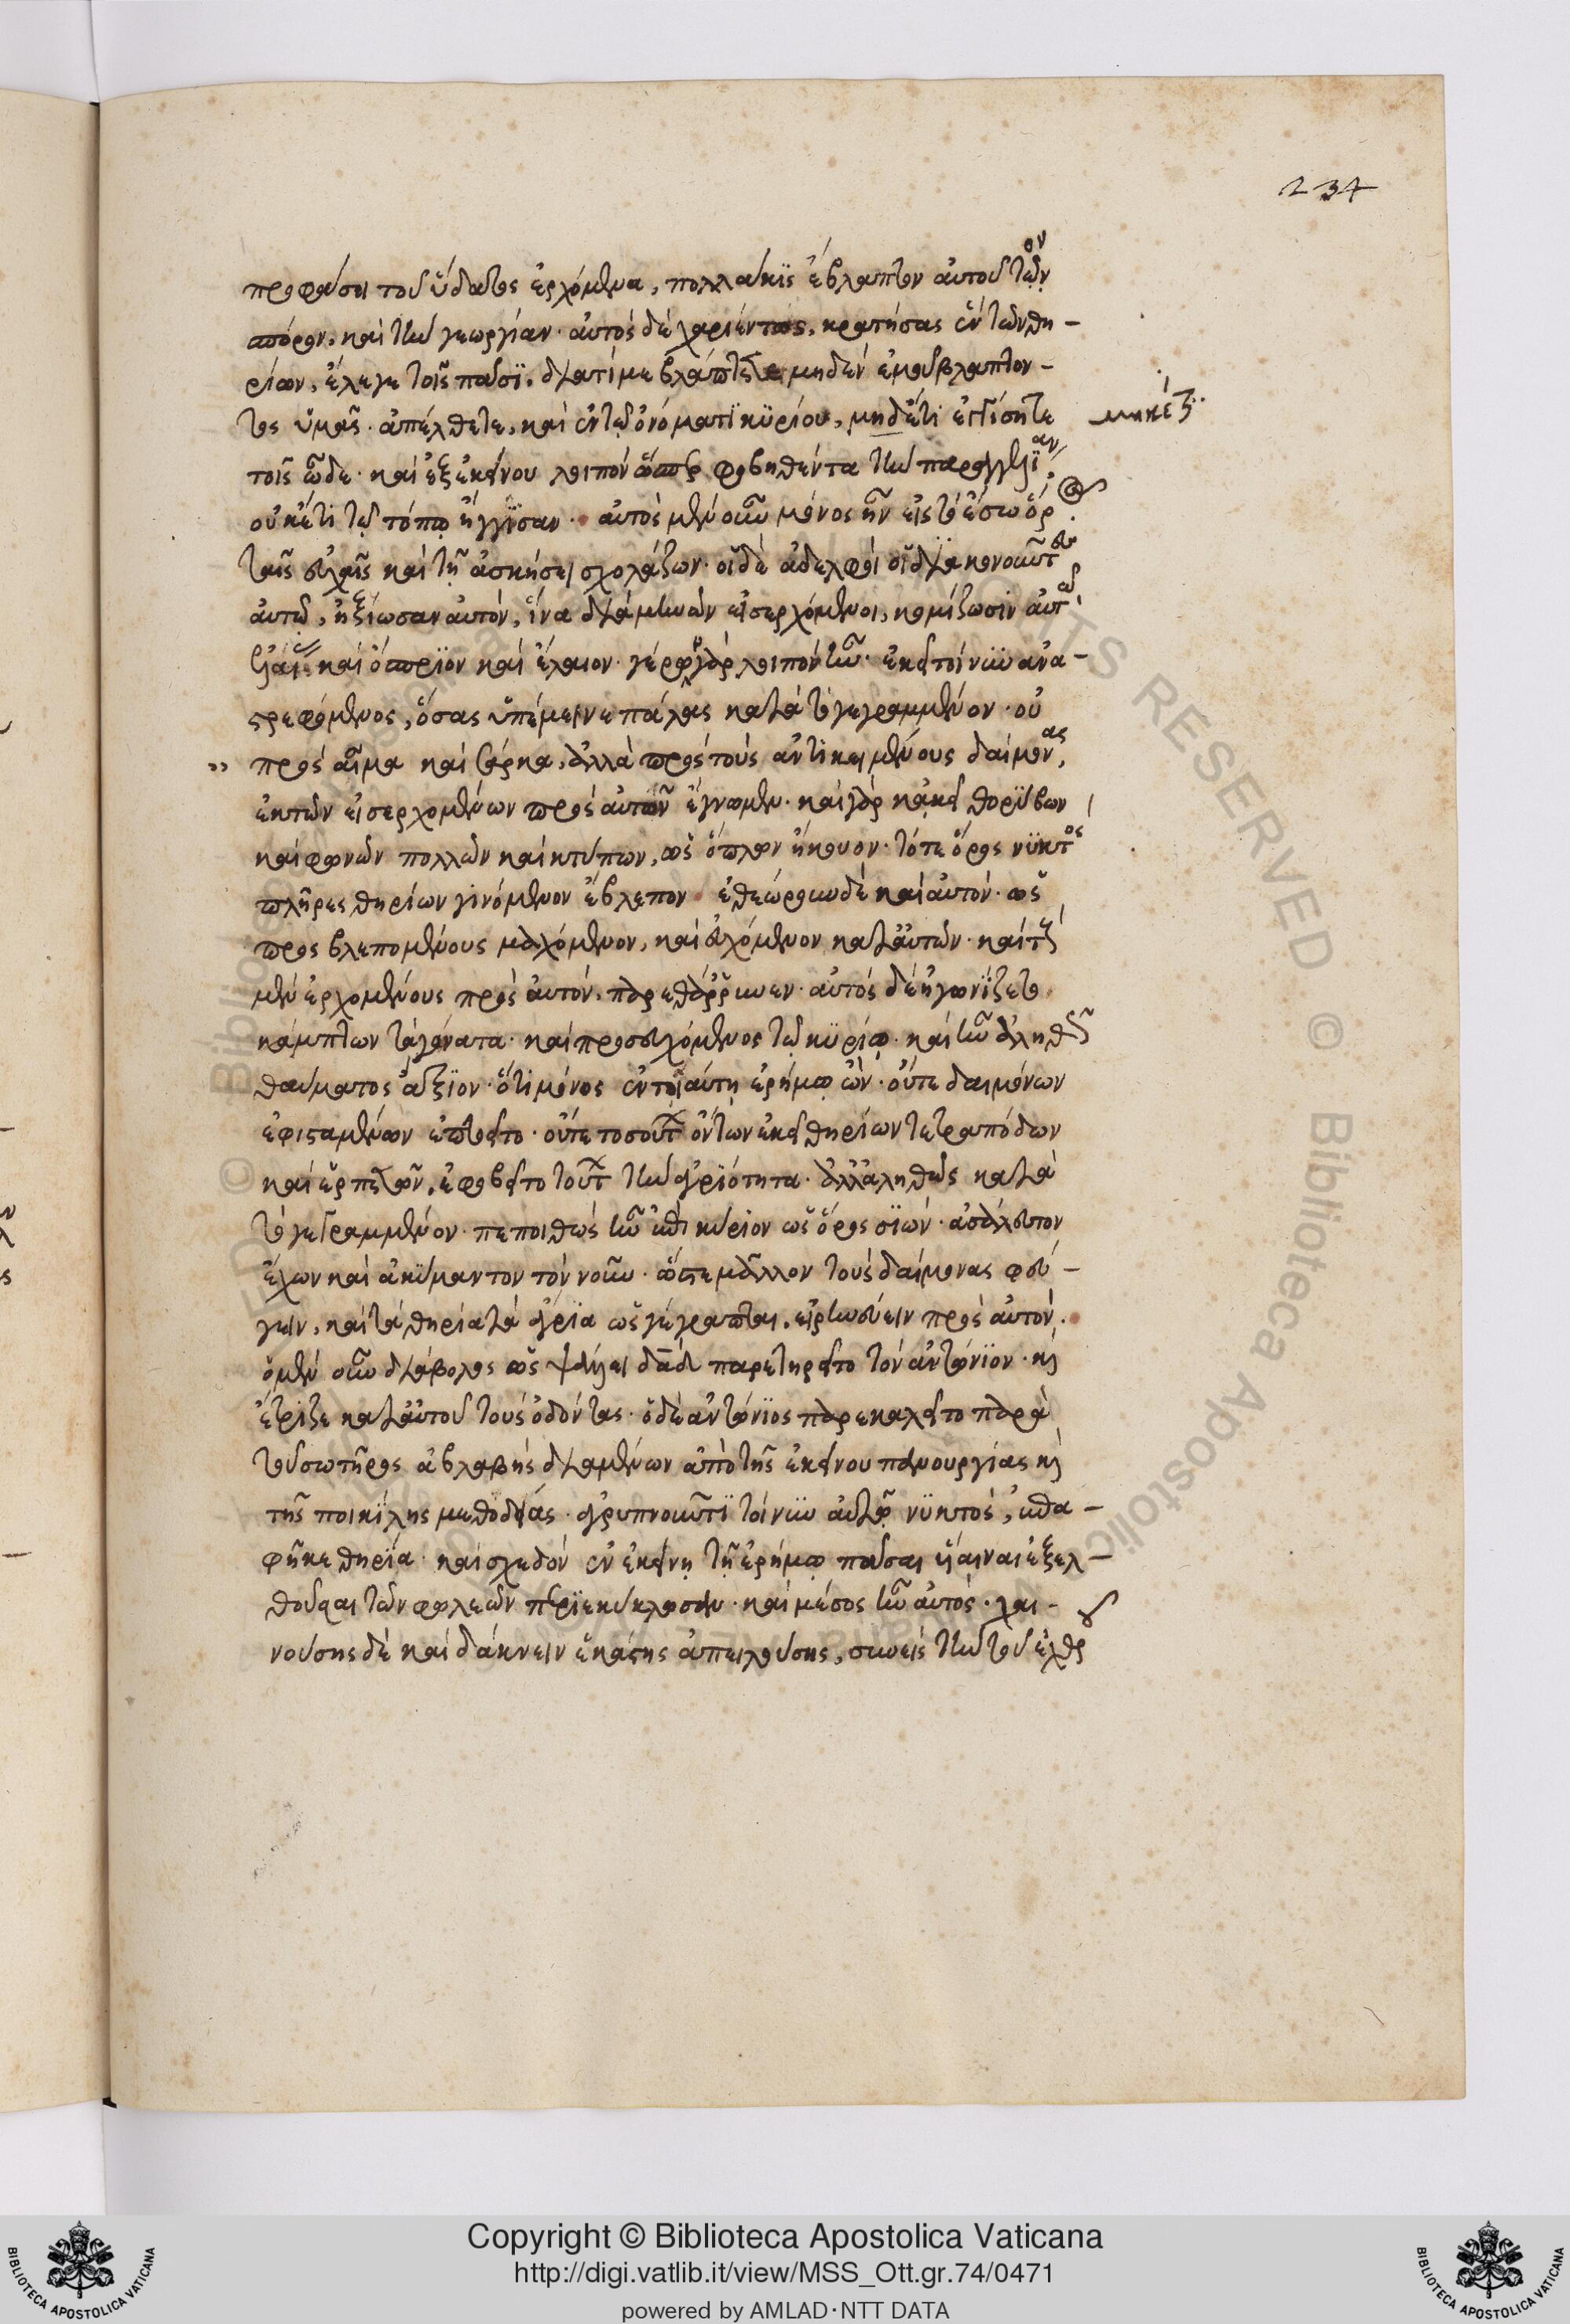 234
προφάσει τοῦ ὕδατος ἐρχόμενα, πολλάκϊς ἔβλαπτον αὐτοῦ τὸν
σπόρον, καὶ τὴν γεωργίαν· αὐτὸς δὲ χαριέντως, κρατήσας ἓν τῶν θη-
ρίων, ἔλεγε τοῖς πᾶσϊ, διατί με βλάπτετε μηδὲν ἐμοῦ βλάπτον-
τος ὑμᾶς· ἀπέλθετε, καὶ ἐν τῷ ὀνόματϊ κϋρίου, μηδέτι ἐγγίσητε
μηκέτϊ
τοῖς ὧδε· καὶ ἐξ ἐκείνου λοιπὸν ὥσπερ φοβηθέντα τὴν παραγγελίαν
οὐκέτι τῷ τόπῳ ἤγγϊσαν· αὐτὸς μὲν οὖν μόνος ἦν εἰς τὸ ἔσω ὄρος
ταῖς εὐχαῖς καὶ τῇ ἀσκήσει σχολάζων· οἱ δὲ ἀδελφοὶ οἱ διακονοῦντες
αὐτῷ, ἠξίωσαν αὐτὸν, ἵνα διὰ μηνῶν εἰσερχόμενοι, κομίζωσιν αὐτῷ
ἐλαίας καὶ ὄσπριον καὶ ἔλαιον· γέρων γὰρ λοιπὸν ἦν· ἐκεῖ τοίνϋν ἀνα-
στρεφόμενος, ὅσας ὑπέμεινε πάλας κατὰ τὸ γεγραμμένον· οὐ
πρὸς αἷμα καὶ σάρκα, ἀλλὰ πρὸς τοὺς ἀντικειμένους δαίμονας,
ἐκ τῶν εἰσερχομένων πρὸς αὐτὸν ἔγνωμεν· καὶ γὰρ κἀκεῖ θορύβων
καὶ φωνῶν πολλῶν καὶ κτύπων, ὡς ὅπλων ἤκουον· τότε ὄρος νϋκτὸς
πλῆρες θηρίων γινόμενον ἔβλεπον· ἐθεώρουν δὲ καὶ αὐτὸν· ὡς
πρὸς βλεπομένους μαχόμενον, καὶ εὐχόμενον κατ' αὐτῶν· καὶ τοὺς
μὲν ἐρχομένους πρὸς αὐτὸν, παρεθάρρυνεν· αὐτὸς δὲ ἠγωνίζετο
κάμπτων τὰ γόνατα· καὶ προσευχόμενος τῷ κϋρίῳ· καὶ ἦν ἀληθῶς
θαύματος ἄξϊον· ὅτι μόνος ἐν τοιαύτῃ ἐρήμῳ ὢν· οὔτε δαιμόνων
ἐφισταμένων ἐπτοεῖτο· οὔτε τοσούτων ὄντων ἐκεῖ θηρίων τετραπόδων
καὶ ἑρπετῶν, ἐφοβεῖτο τούτων τὴν ἀγρϊότητα· ἀλλ' ἀληθῶς κατὰ
τὸ γεγραμμένον· πεποιθὼς ἦν ἐπὶ κύριον ὡς ὄρος σϊών· ἀσάλευτον
ἔχων καὶ ἀκύμαντον τὸν νοῦν· ὥστε μᾶλλον τοὺς δαίμονας φεύ-
γειν, καὶ τὰ θηρία τὰ ἄγρϊα ὡς γέγραπται, εἰρηνεύειν πρὸς αὐτόν·
ὁ μὲν οὖν διάβολος ὡς ψάλλει δαδ παρετηρεῖτο τὸν ἀντώνϊον· κὶ
ἔτριζε κατ' αὐτοῦ τοὺς ὀδόντας· ὁ δὲ ἀντώνϊος παρεκαλεῖτο παρὰ
τοῦ σωτῆρος ἀβλαβὴς διαμένων ἀπὸ τῆς ἐκείνου πανουργίας κὶ
τῆς ποικίλης μεθοδείας· ἀγρυπνοῦντϊ τοίνϋν αὐτῷ νϋκτὸς, ἐπα-
φῆκε θηρϊα· καὶ σχεδὸν ἐν ἐκείνῃ τῇ ἐρήμῳ πᾶσαι ὕαιναι ἐξελ-
θοῦσαι τῶν φωλεῶν περϊεκύκλωσαν· καὶ μέσος ἦν αὐτὸς· χαι-
νούσης δὲ καὶ δάκνειν ἑκάστης ἀπειλούσης, συνεὶς τὴν τοῦ ἐχθροῦ
Copyright © Biblioteca Apostolica Vaticana
http://digi.vatlib.it/view/MSS_Ott.gr.74/0471
powered by AMLAD·NTT DATA